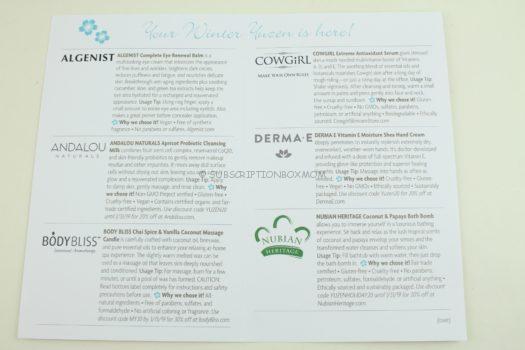 Your Winter Yuzen is here!
ALGENIST
ALGENIST Complete Eye Renewal Balm is a
multitasking eye cream that minimizes the appearance
of fine lines and wrinkles, brightens dark circles,
reduces puffiness and fatigue, and nourishes delicate
skin. Breakthrough anti-aging ingredients plus soothing
cucumber, aloe, and green tea extracts help keep the
eye area hydrated for a recharged and rejuvenated
appearance. Usage Tip: Using ring finger, apply a
small amount to entire eye area including eyelids. Also
makes a great primer before concealer application.
Why we chose it? Vegan • Free of synthetic
fragrance • No parabens or sulfates. Algenist.com
ANDALOU
NATURALS
ANDALOU NATURALS Apricot Probiotic Cleansing
Milk combines fruit stem cell complex, resveratrol CoQ10,
and skin-friendly probiotics to gently remove makeup
residue and other impurities. It rinses away dull surface
cells without drying out skin, leaving you with a
glow and a rejuvenated complexion. Usage Tip: Apply
to damp skin, gently massage, and rinse clean. Why
we chose it? Non-GMO Project verified • Gluten-free •
Cruelty-free • Vegan • Contains certified organic and fair-
trade certified ingredients. Use discount code YUZEN20
until 1/31/19 for 20% off at Andalou.com.
BODYBLISS
BODY BLISS Chai Spice & Vanilla Coconut Massage
Candle is carefully crafted with coconut oil, beeswax,
and pure essential oils to enhance your relaxing at-home
spa experience. The slightly warm melted wax can be
used as a massage oil that leaves skin deeply nourished
and conditioned. Usage Tip: For massage, burn for a few
minutes, or until a pool of wax has formed. CAUTION:
Read bottom label completely for instructions and safety
precautions before use. Why we chose it? All-
natural ingredients • Free of parabens, sulfates, and
formaldehyde • No artificial coloring or fragrance. Use
discount code MY30 by 1/15/19 for 30% off at bodybliss.com.
COWGIRL
MAKE YOUR OWN RULES
COWGIRL Extreme Antioxidant Serum gives stressed
skin a much-needed multivitamin boost of Vitamins
A, B, C and E. The soothing blend of essential oils and
botanicals maintains Cowgirl skin after a long day of
rough riding—or just a long day at the office. Usage Tip:
Shake vigorously. After cleansing and toning, warm a small
amount in palms and gently press into face and neck.
Why we chose it? Gluten-
free • Cruelty-free • No GMOs, sulfates, parabens,
petroleum, or artificial anything • Biodegradable • Ethically
sourced. CowgirlSkincareStore.com
DERMA·E
DERMA E Vitamin E Moisture Shea Hand Cream
deeply penetrates to instantly replenish extremely dry,
overworked, weather-worn hands. It's doctor-formulated
and infused with a dose of full spectrum Vitamin E,
providing glove-like protection and superior healing
benefits. Usage Tip: Massage into hands as often as
needed. Why we chose it? Cruelty-free • Gluten-
free • Vegan • No GMOs • Ethically sourced • Sustainably
packaged. Use discount code Yuzen20 for 20% off at
DermaE.com.
NUBIAN
HERITAGE
NUBIAN HERITAGE Coconut & Papaya Bath Bomb
allows you to immerse yourself in a luxurious bathing
experience. Sit back and relax as the lush tropical scents
of coconut and papaya envelop your senses and the
transformed water cleanses and softens your skin.
Usage Tip: Fill bathtub with warm water, then just drop
the bath bomb in. Why we chose it? Fair trade
certified • Gluten-free • Cruelty-free • No parabens,
petroleum, sulfates, formaldehyde, or artificial anything •
Ethically sourced and sustainably packaged. Use discount
until 1/31/19 for 30% off at
NubianHeritage.com.
(over)
© SUBSCRIPTIONBOXMOM